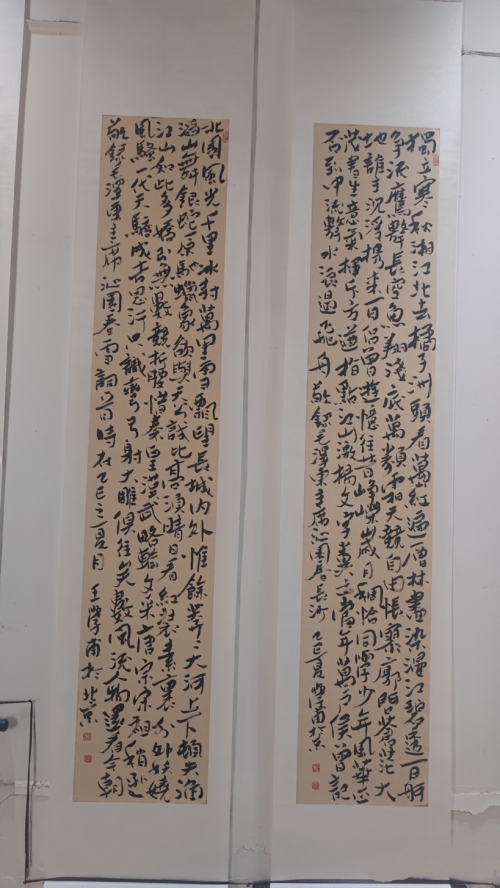 獨立寒秋湘江北去橘子洲頭看萬紅遍層林盡染漫江碧透百舸
爭流鷹擊長空魚翔淺底萬類霜天競自由悵寥廓問蒼茫大
地誰主沉浮攜來百侶曾遊憶往昔崢嶸歲月稠恰同學少年風華正
茂書生意氣揮斥方遒指點江山激揚文字糞土當年萬戶侯曾記
否到中流擊水浪遏飛舟 敬錄毛澤東主席沁園春長沙 乙巳夏 學甫於京
北國風光千里冰封萬里雪飄望長城內外惟餘莽々大河上下頓失滔
滔山舞銀蛇原馳蠟象欲與天公試比高須晴日看紅裝素裹分外妖嬈
江山如此多嬌引無數競折腰惜秦皇漢武略輸文采唐宗宋祖稍遜
風騷一代天驕成吉思汗只識彎弓射大雕俱往矣數風流人物還看今朝
敬錄毛澤東主席沁園春雪詞一首時在乙巳之夏月 王學甫於北京